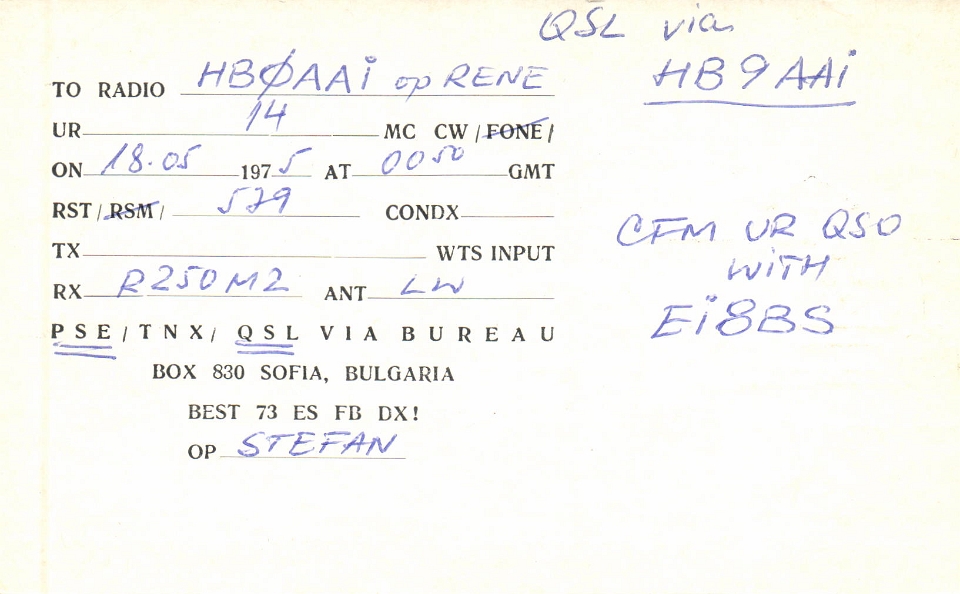 QSL via
HB9AAi
TO RADIO HBØAAi op RENE
UR 14 MC CW / FONE /
ON 18.05 1975 AT 0050 GMT
RST / RSM / 579 CONDX
TX WTS INPUT
RX R250M2 ANT LW
PSE / TNX / QSL VIA BUREAU
BOX 830 SOFIA, BULGARIA
BEST 73 ES FB DX!
OP STEFAN
CFM UR QSO
WiTH
Ei8BS